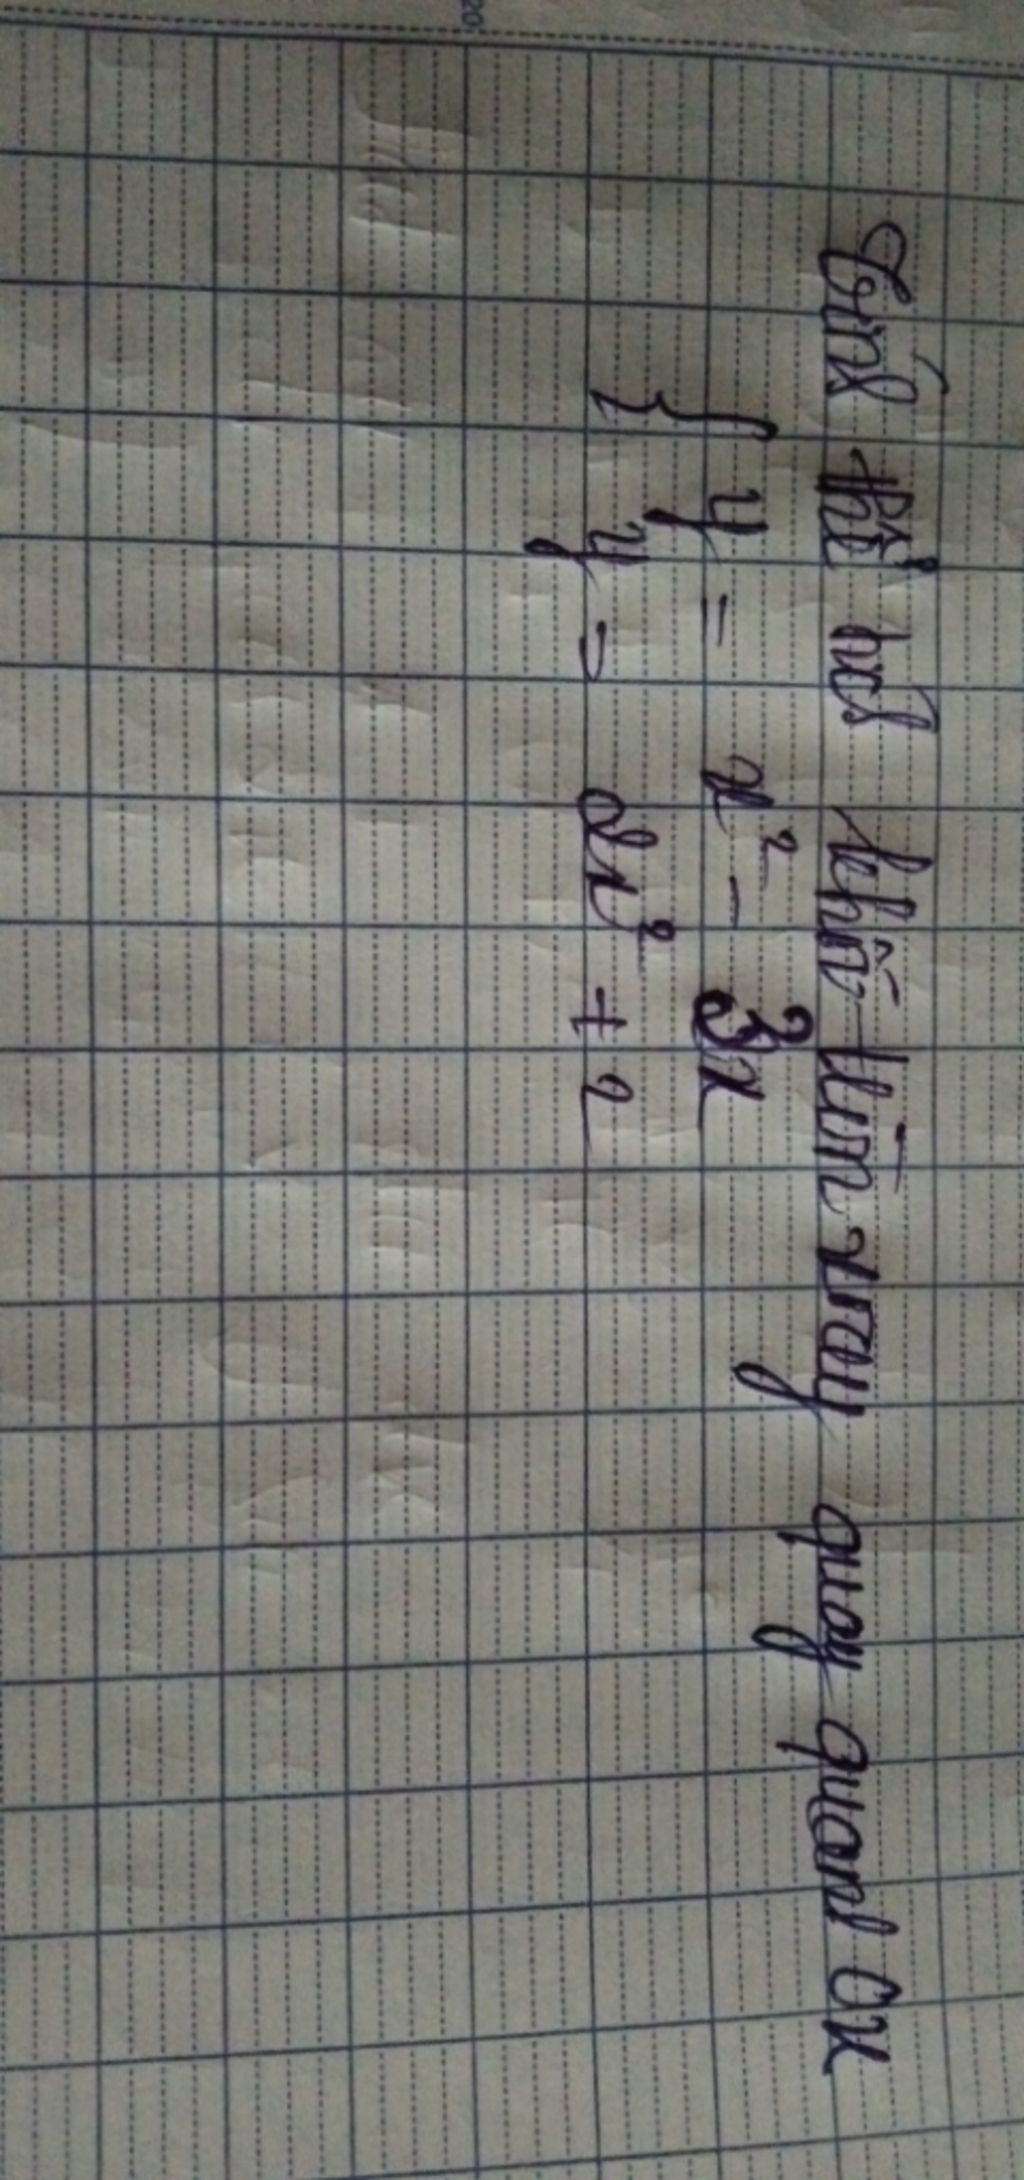 Tính thể tích khối tròn xoay quay quanh Ox
{ y = x² - 3x
y = 2x² + 2
20